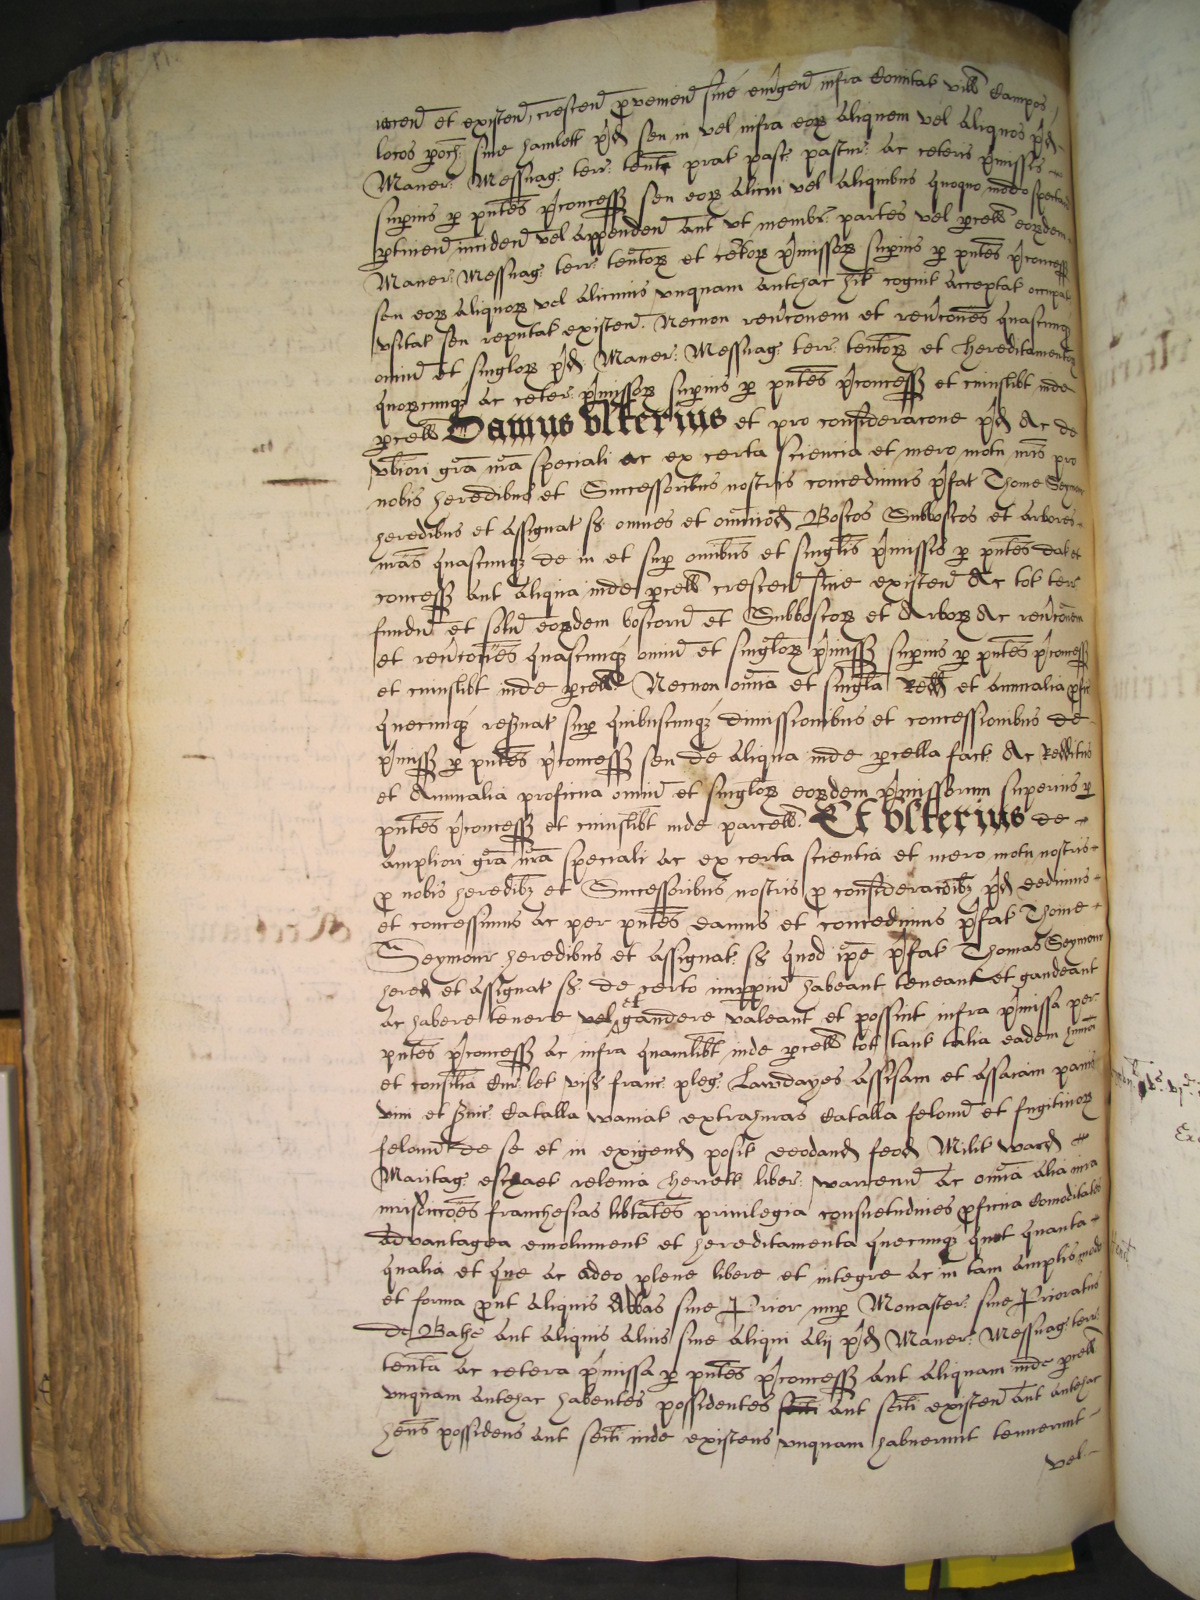 iacen et existen, crescen pvenien sive emgen infra Comitat vill Campos
locos poch sive hamlett pd seu in vel infra eor aliquem vel aliquos pd
Maner Messuag terr tent prat past pastur ac ceteris pmissis
superius p pntes pconcess seu eor alicui vel aliquibus quoquo modo spectan
ptinen inciden vel appenden aut ut membr partes vel pcell eordem
Maner Messuag terr tentor et cetor pmissor superius p pntes pconcess
seu eor aliquor vel alicuius unquam antehac hit cognit acceptat occupat
usitat seu reputat existen. Necnon revconem et revcones quascunq
omniu et singlor pd Maner Messuag terr tentor et hereditamentor
quorcunq ac ceter pmissor superius p pntes pconcess et cuiuslibt inde
pcell Damus ulterius et pro consideracone pd Ac de
ubiori gra nra speciali ac ex certa sciencia et mero motu nris pro
nobis heredibus et Successoribus nostris concedimus pfat Thome Seymour
heredibus et assignat s omnes et omniod Boscos Subboscos et arbores
nras quascunq de in et sup omibus et singlis pmissis p pntes dat et
concess aut aliqua inde pcell crescen sive existen Ac tot terr
fundu et solu eordem boscorum et Subboscor et Arbor Ac revconem
et revcones quascunq omniu et singlor pmiss superius p pntes pconcess
et cuiuslibt inde pcell Necnon omia et singla Redd et annualia pfic
quecunq reservat sup quibuscunq dimissionibus et concessionibus de
pmiss p pntes pconcess seu de aliqua inde parcella fact Ac Redditus
et Annualia proficua omniu et singlor eordem pmissorum superius p
pntes pconcess et cuiuslibt inde parcell. Et ulterius de
ampliori gra nra speciali ac ex certa scientia et mero motu nostris
p nobis heredibz et Successoribus nostris p consideracoibz pd dedimus
et concessimus ac per pntes damus et concedimus pfat Thome
Seymour heredibus et assignat s quod ipe pfat Thomas Seymour
hered et assignat s de certo imppm habeant teneant et gaudeant
ac habere tenere vel et gaudere valeant et possint infra pmissa per
pntes pconcess ac infra quamlibt inde pcell tot tant talia eadem
et consilia Cur let vis franc pleg Lawdayes assisam et assaiam panis
vini et Catalla waviat extrahuras Catalla felonu et fugitivor
felonu de se et in exigend posit deodand feod Milit ward
Maritag eschaet relevia heriett liber warrenn Ac omia alia iura
iurisdiccoes franchesias libtates privilegia consuetudines pficua Comoditates
advantagea emolument et hereditamenta quecunq quot quanta
qualia et que ac adeo plene libere et integre ac in tam amplis modo
et forma put aliquis Abbas sive Prior nup Monaster sive Prioratus
de Bathe aut aliquis alius sive aliqui alij pd Maner Messuag terr
tenta ac cetera pmissa p pntes pconcess aut aliquam inde pcell
unquam antehac habentes possidentes aut seiti existen aut antehac
hens possidens aut seitus inde existens unquam habuerunt tenuerunt
vel